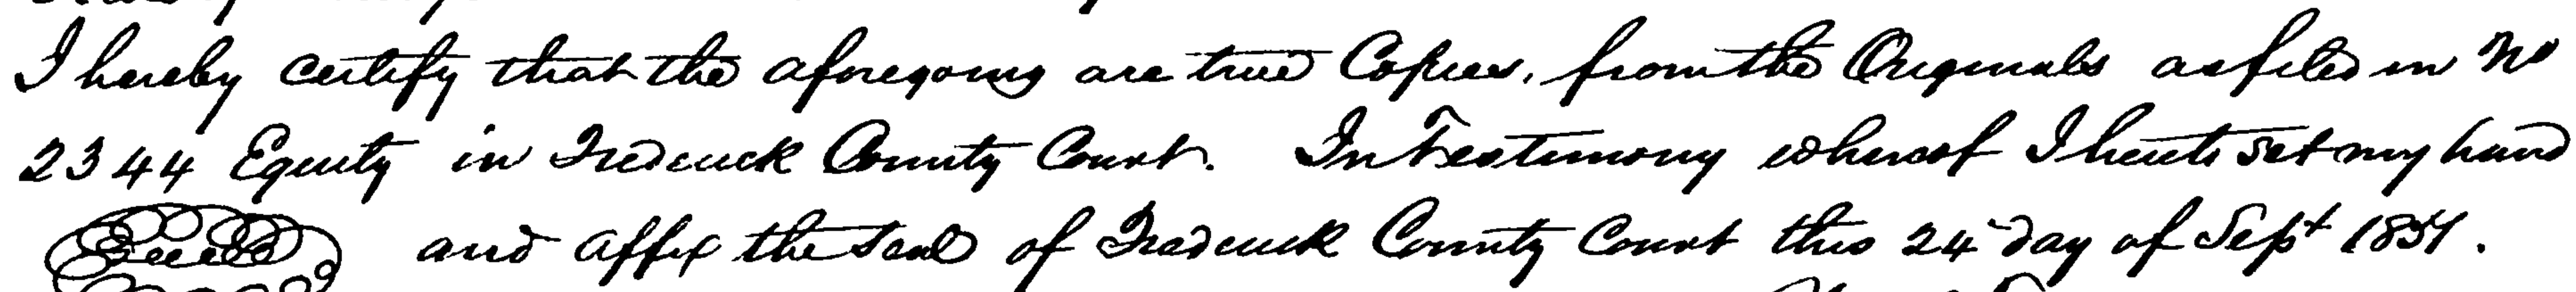 I hereby certify that the aforegoing are true Copies, from the Originals as filed in No
2344 Equity in Frederick County Court. In Testimony whereof I hereto set my hand
and affix the Seal of Frederick County Court this 24 day of Sept 1851.